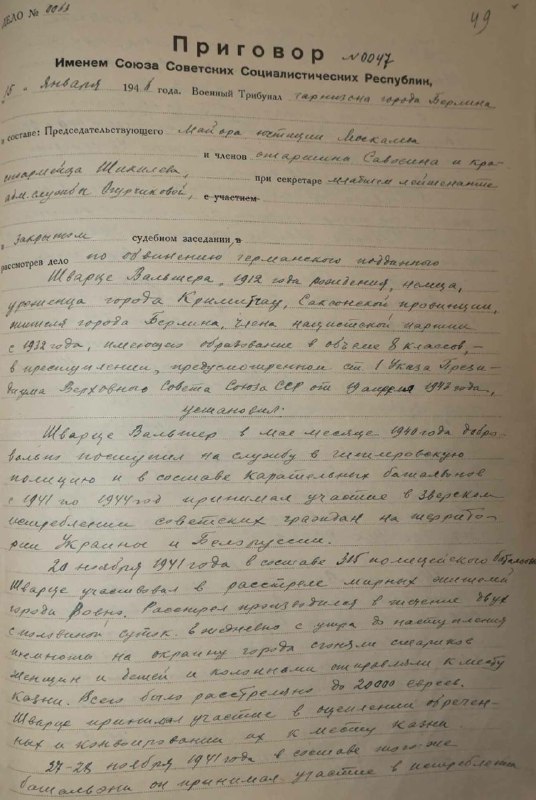 ДЕЛО № 0033
49
Приговор №0047
Именем Союза Советских Социалистических Республик,
января 1946 года. Военный Трибунал гарнизона города Берлина
в составе: Председательствующего Майора юстиции Москалева
и членов старшина Савосина и кра-
сноармейца Шикилева, при секретаре младшем лейтенанте
адм. службы Огурчиковой, с участием
в закрытом судебном заседании в
рассмотрев дело по обвинению германского подданного
Шварце Вальтера, 1912 года рождения, немца,
уроженца города Криммитчау, Саксонской провинции,
жителя города Берлина, члена нацистской партии
с 1932 года, имеющего образование в объеме 8 классов, –
в преступлении, предусмотренном ст. 1 Указа Прези-
диума Верховного Совета Союза ССР от 19 апреля 1943 года,
установил:
Шварце Вальтер в мае месяце 1940 года добро-
вольно поступил на службу в гитлеровскую
полицию и в составе карательных батальонов
с 1941 по 1944 год принимал участие в зверском
истреблении советских граждан на террито-
рии Украины и Белоруссии.
20 ноября 1941 года в составе 315 полицейского батальона
Шварце участвовал в расстреле мирных жителей
города Ровно. Расстрел производился в течение двух
с половиной суток. Ежедневно с утра до наступления
темноты на окраину города сгоняли стариков
женщин и детей и колоннами отправляли к месту
казни. Всего было расстреляно до 20000 евреев.
Шварце принимал участие в оцеплении обречен-
ных и конвоировании их к месту казни
27-28 ноября 1941 года в составе того же
батальона он принимал участие в истреблении